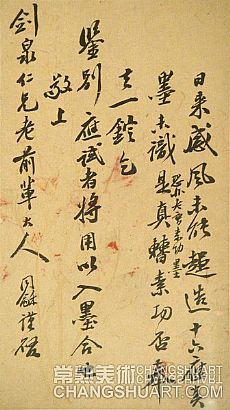 日来感风未能趋造十六
墨未识是真曹素功否奉
去一铤乞
鉴别应试者将用以入墨合也
敬上
剑泉仁兄老前辈大人
同龢谨启
常熟美術
CHANGSHUART
CHANGSHUART.COM